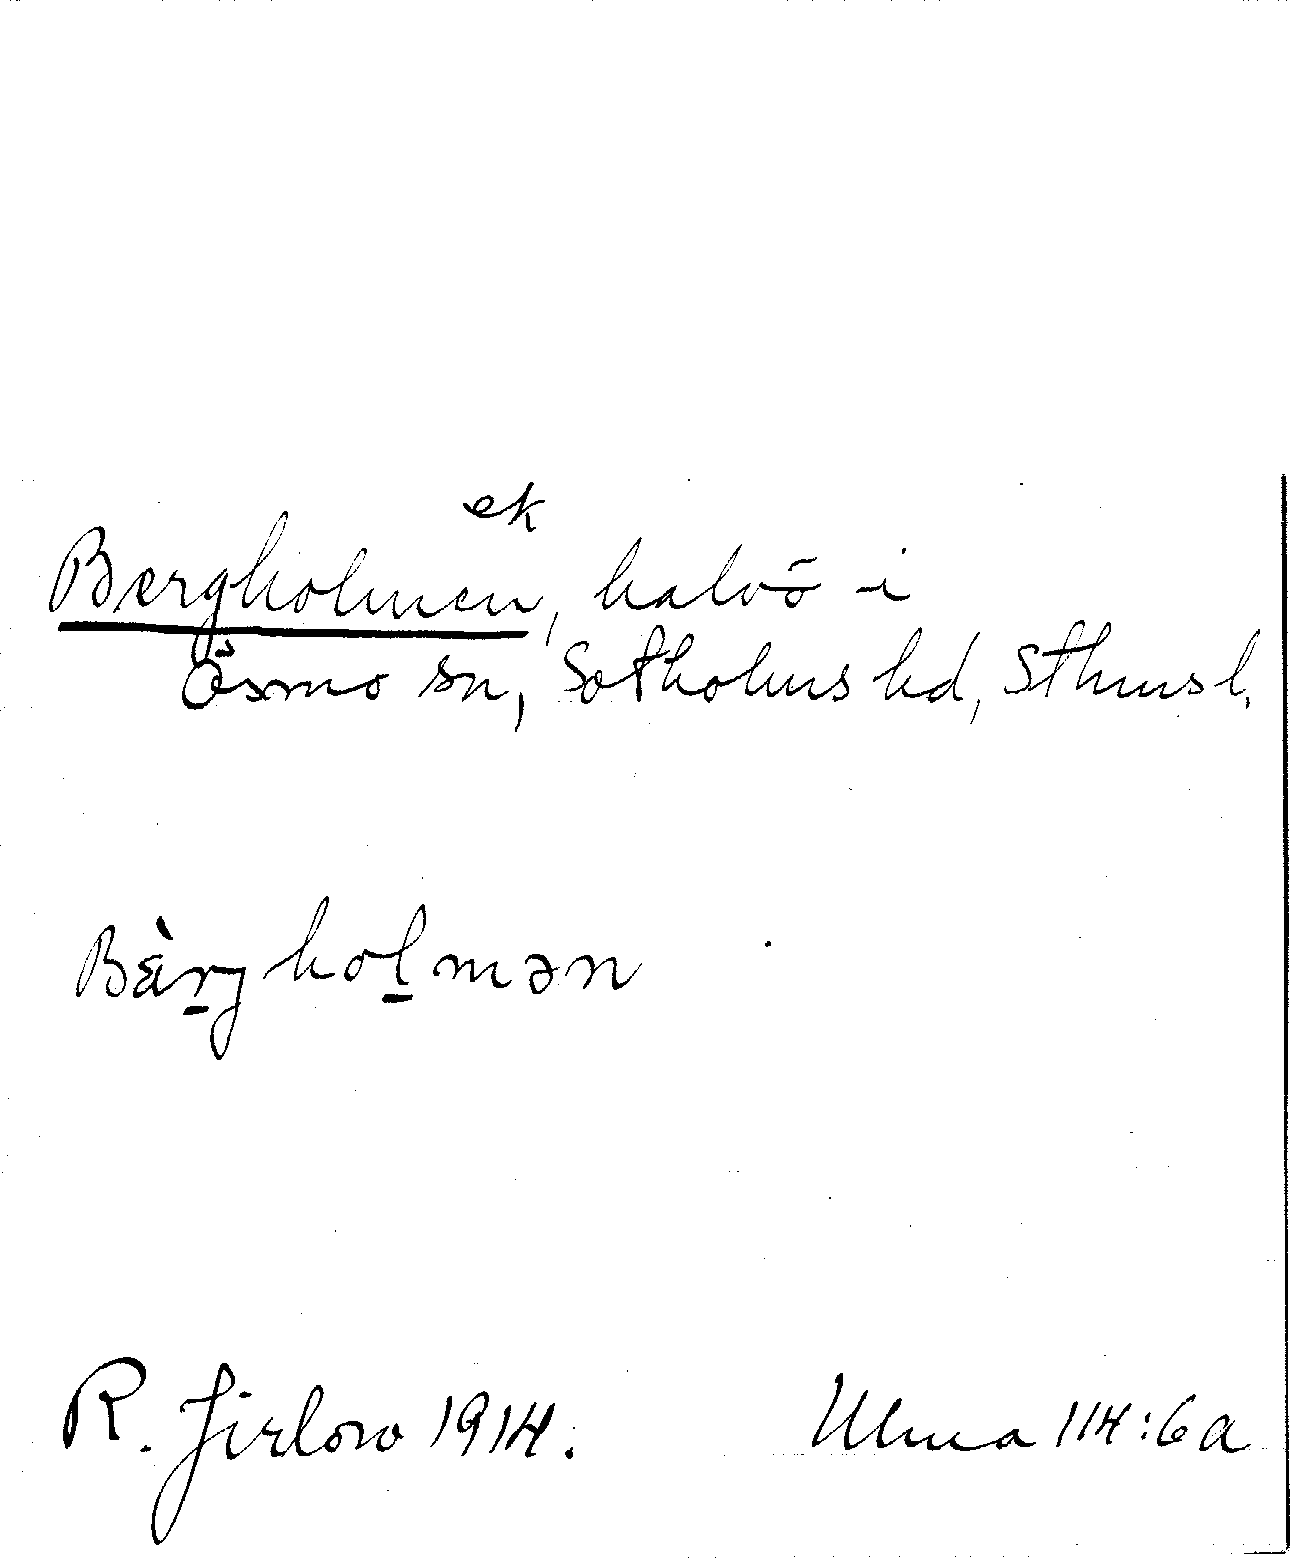 ek
Bergholmen, halvö i
Ösmo sn, Sotholms hd, Sthms l.
Bàrgholmən
R. Jirlow 1914.
Ulma 114:6a